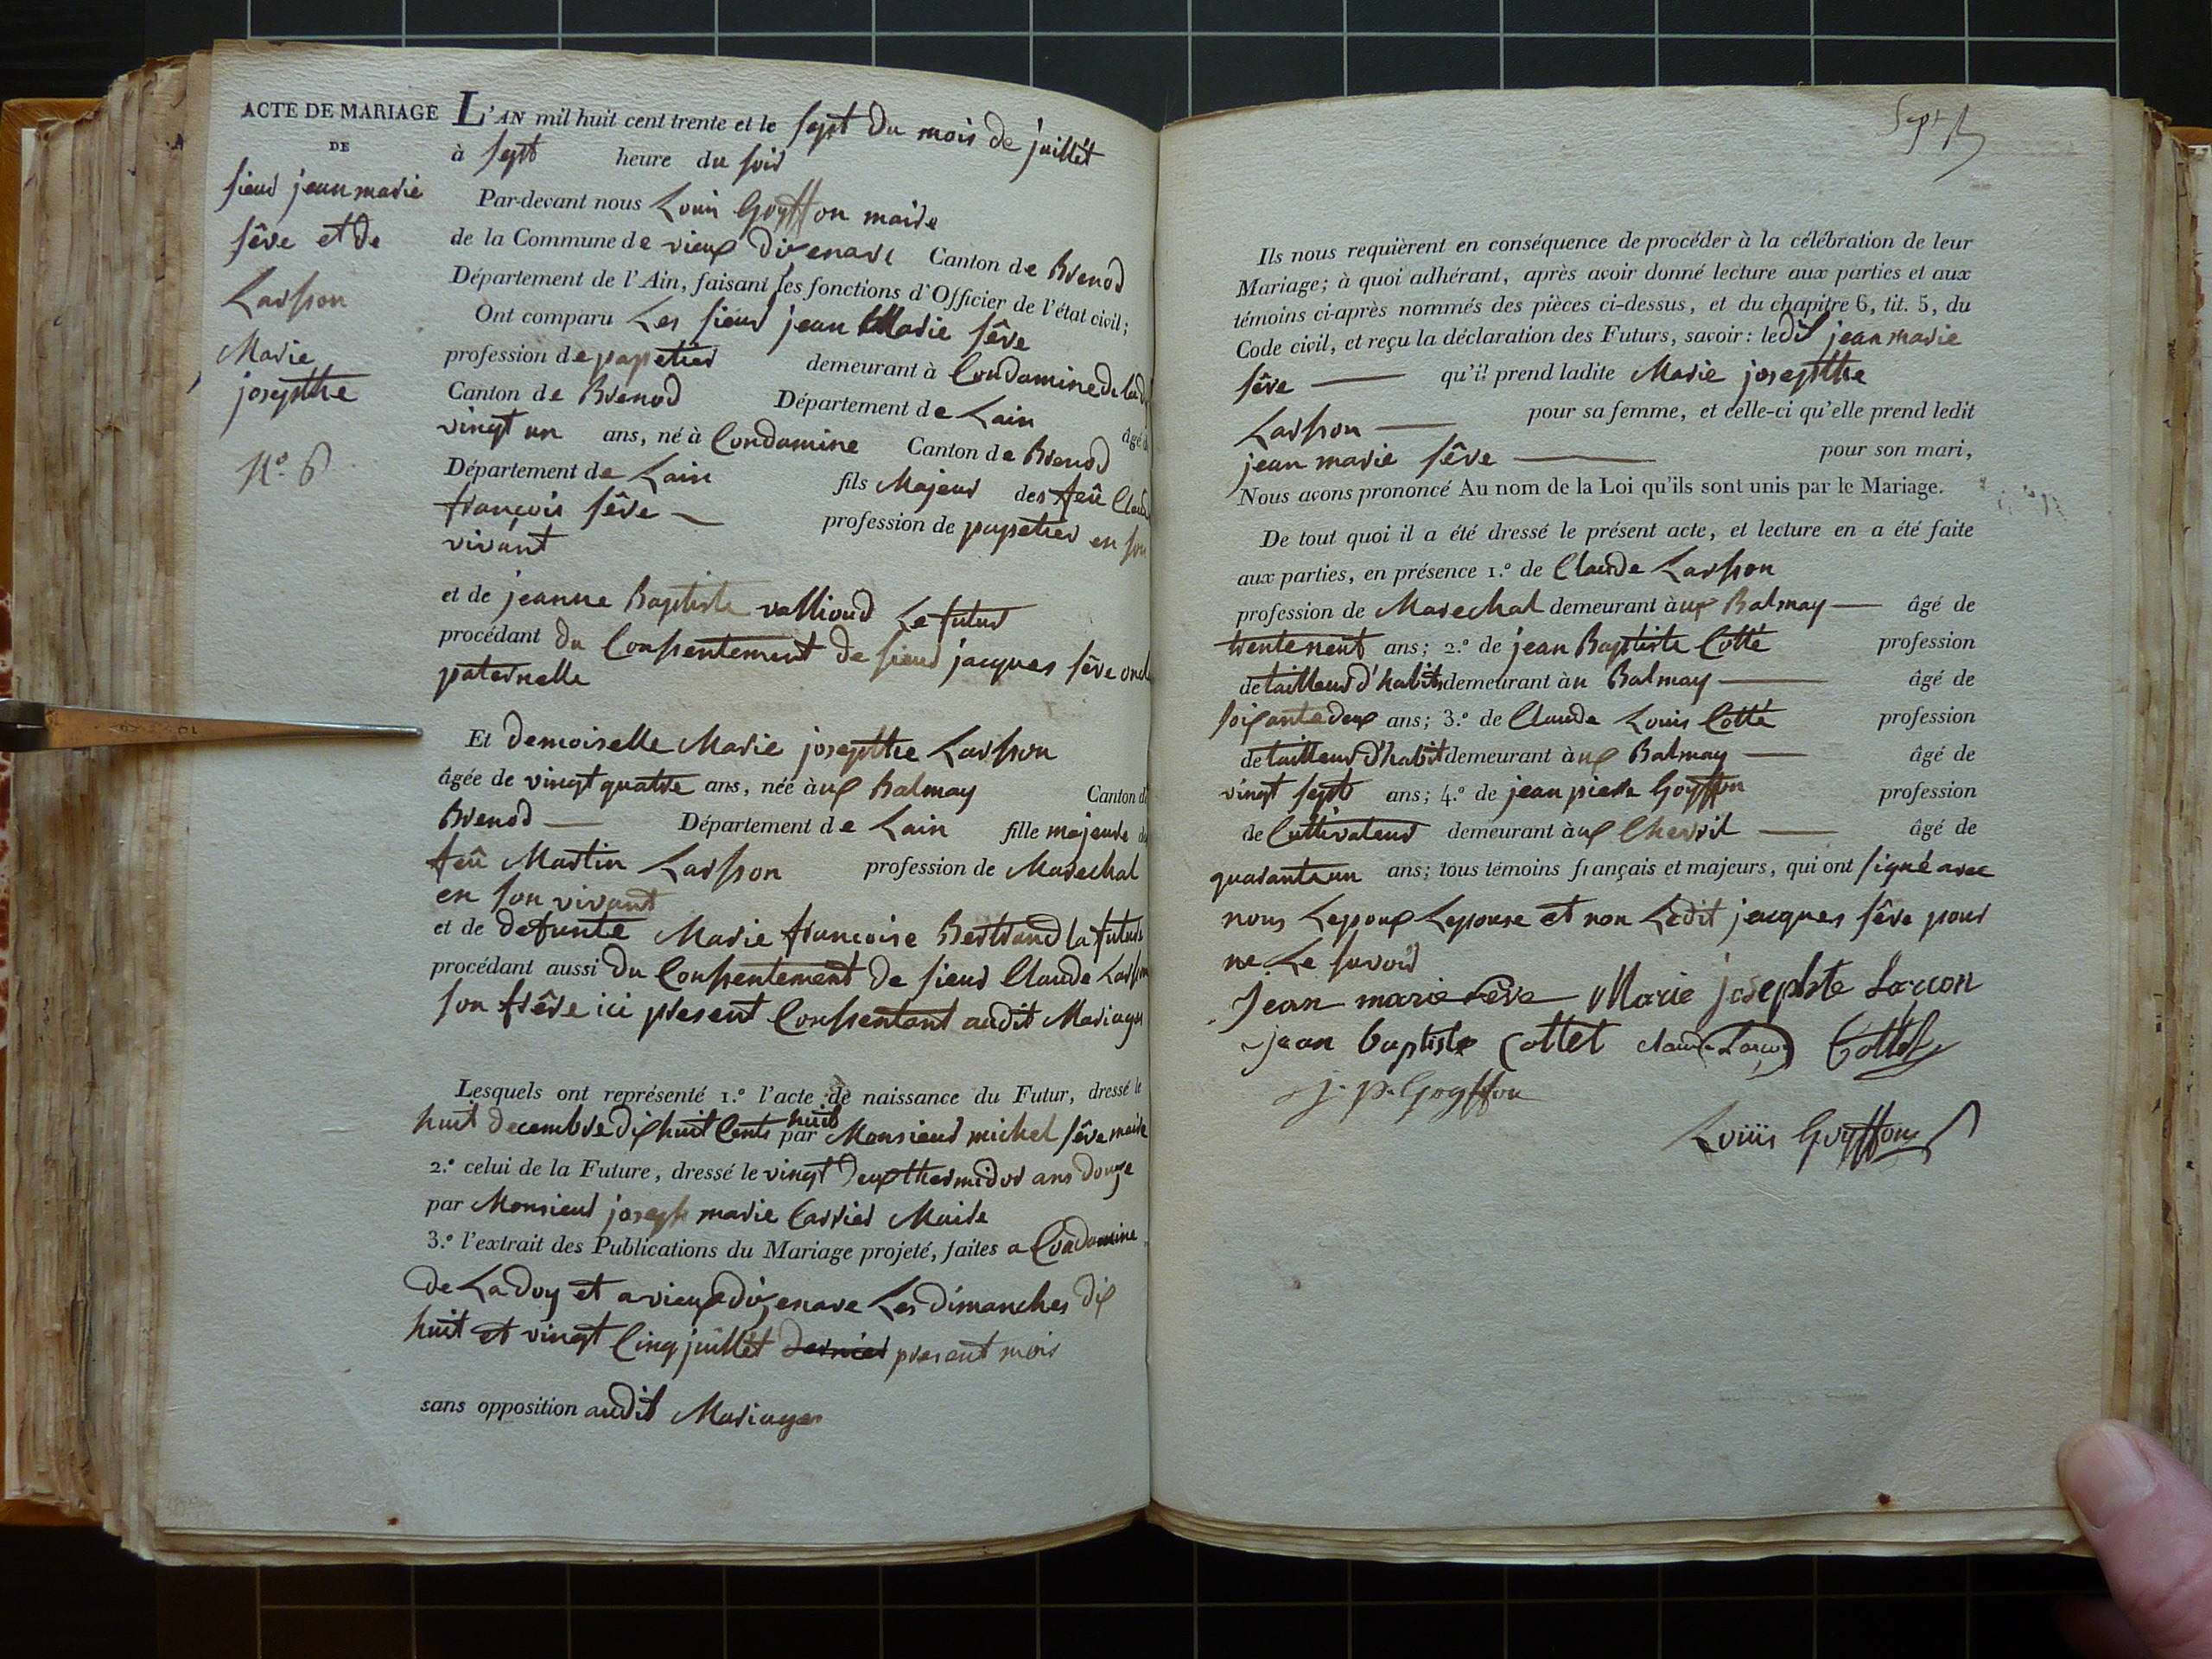 ACTE DE MARIAGE
DE
sieur jean marie
sêve et de
Larsson
Marie
josepthe
N.º 6
L'AN mil huit cent trente et le sept du mois de juillet
à sept heure du soir
Par-devant nous Louis Goyffon maire
de la Commune de vieux d'izenave Canton de Brenod
Département de l'Ain, faisant les fonctions d'Officier de l'état civil;
Ont comparu Les sieur jean Marie sêve
profession de papetier demeurant à Condamine de lad
Canton de Brenod Département de Lain âgé d
vingt un ans, né à Condamine Canton de Brenod
Département de Lain fils Majeur des feû Claud
françois sêve profession de papetier en son
vivant
et de jeanne Baptiste vallioud Le futur
procédant du Consentement de sieur jacques sêve oncle
paternelle
Et demoiselle Marie josepthe Larsson
âgée de vingt quatre ans, née àux Balmay Canton de
Brenod Département de Lain fille majeure de
feû Martin Larsson profession de Marechal
en son vivant
et de defunte Marie francoise Bertrand la future
procédant aussi du Consentement de sieur Claude Larsson
son frêre ici present Consentant audit Mariages
Lesquels ont représenté 1.º l'acte de naissance du Futur, dressé le
huit decembre dix huit Cents huit par Monsieur michel sêve maire
2.º celui de la Future, dressé le vingt deux thermidor ans douze
par Monsieur joseph marie Carrier Maire
3.º l'extrait des Publications du Mariage projeté, faites a Condamine
de Ladoy et a vieux d'izenave Les dimanches dix
huit et vingt Cinq juillet dernier present mois
sans opposition audit Mariages
Sept
Ils nous requièrent en conséquence de procéder à la célébration de leur
Mariage; à quoi adhérant, après avoir donné lecture aux parties et aux
témoins ci-après nommés des pièces ci-dessus, et du chapitre 6, tit. 5, du
Code civil, et reçu la déclaration des Futurs, savoir: ledit jean marie
sêve qu'il prend ladite Marie josepthe
Larsson pour sa femme, et celle-ci qu'elle prend ledit
jean marie sêve pour son mari,
Nous avons prononcé Au nom de la Loi qu'ils sont unis par le Mariage.
De tout quoi il a été dressé le présent acte, et lecture en a été faite
aux parties, en présence 1.º de Claude Larsson
profession de Marechal demeurant àux Balmay âgé de
trente neuf ans; 2.º de jean Baptiste Cotte profession
de tailleur d'habits demeurant àu Balmay âgé de
soixante deux ans; 3.º de Claude Louis Cotte profession
de tailleur d'habit demeurant àux Balmay âgé de
vingt sept ans; 4.º de jean pierre Goyffon profession
de Cultivateur demeurant àux Cherril âgé de
quarante un ans; tous témoins français et majeurs, qui ont signé avec
nous Lepoux Lepouse et non Ledit jacques sêve pour
ne Le savoir
Jean marie sêve Marie josephte Larcon
jean baptiste Cottet claude Larcon Cottet
j. p. Goyffon
Louis Goyffon